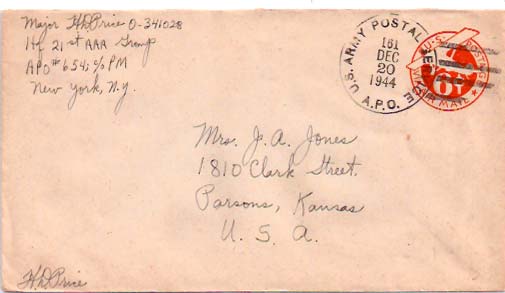 Major H.D. Price O-341028
Hq 21st AAA Group
APO #654, c/o PM
New York, N.Y.
U.S. ARMY POSTAL SERVICE
161
DEC
20
1944
A.P.O.
U.S. POSTAGE
6¢
VIA AIR MAIL
Mrs. J. A. Jones
1810 Clark Street.
Parsons, Kansas
U. S. A.
H.D. Price